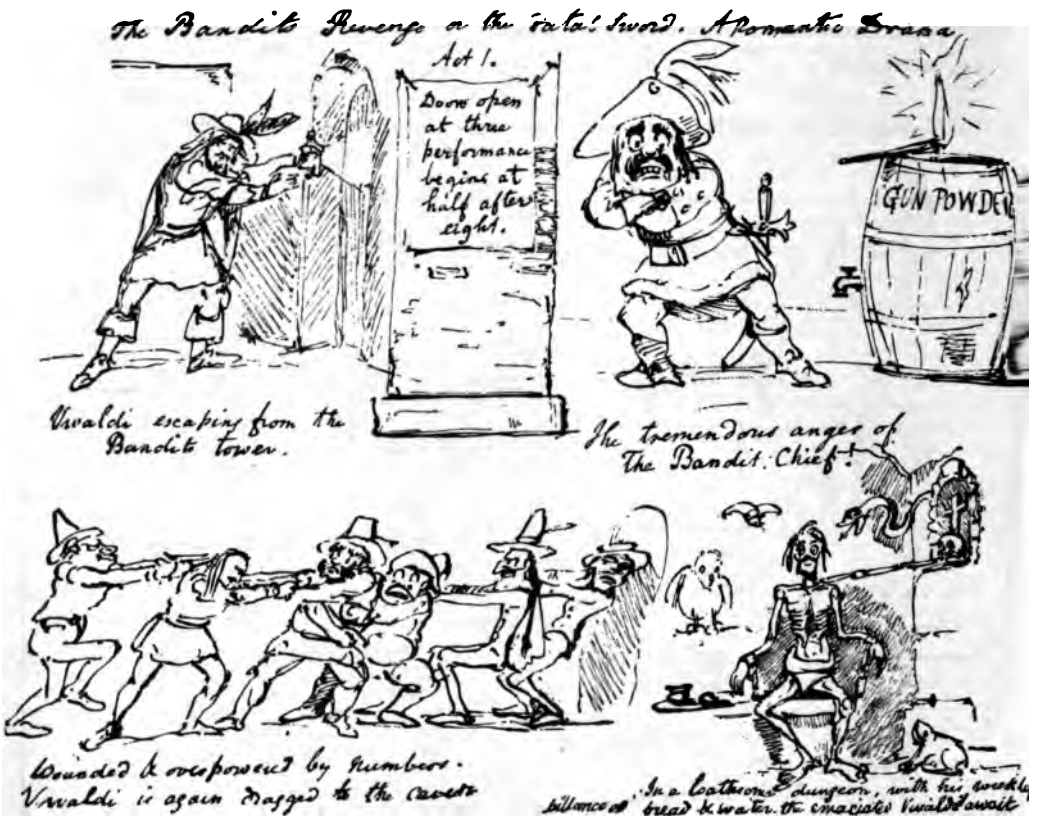 The Bandits Revenge or the Fatal Sword. A Romantic Drama
Act 1.
Doors open
at three
performance
begins at
half after
eight.
GUN POWDER
Vivaldi escaping from the
Bandits tower.
The tremendous anger of
The Bandit Chief!
Wounded & overpowered by numbers.
Vivaldi is again dragged to the cavern
In a loathsome dungeon, with his weekly
pittance of bread & water. the emaciated Vivaldi await